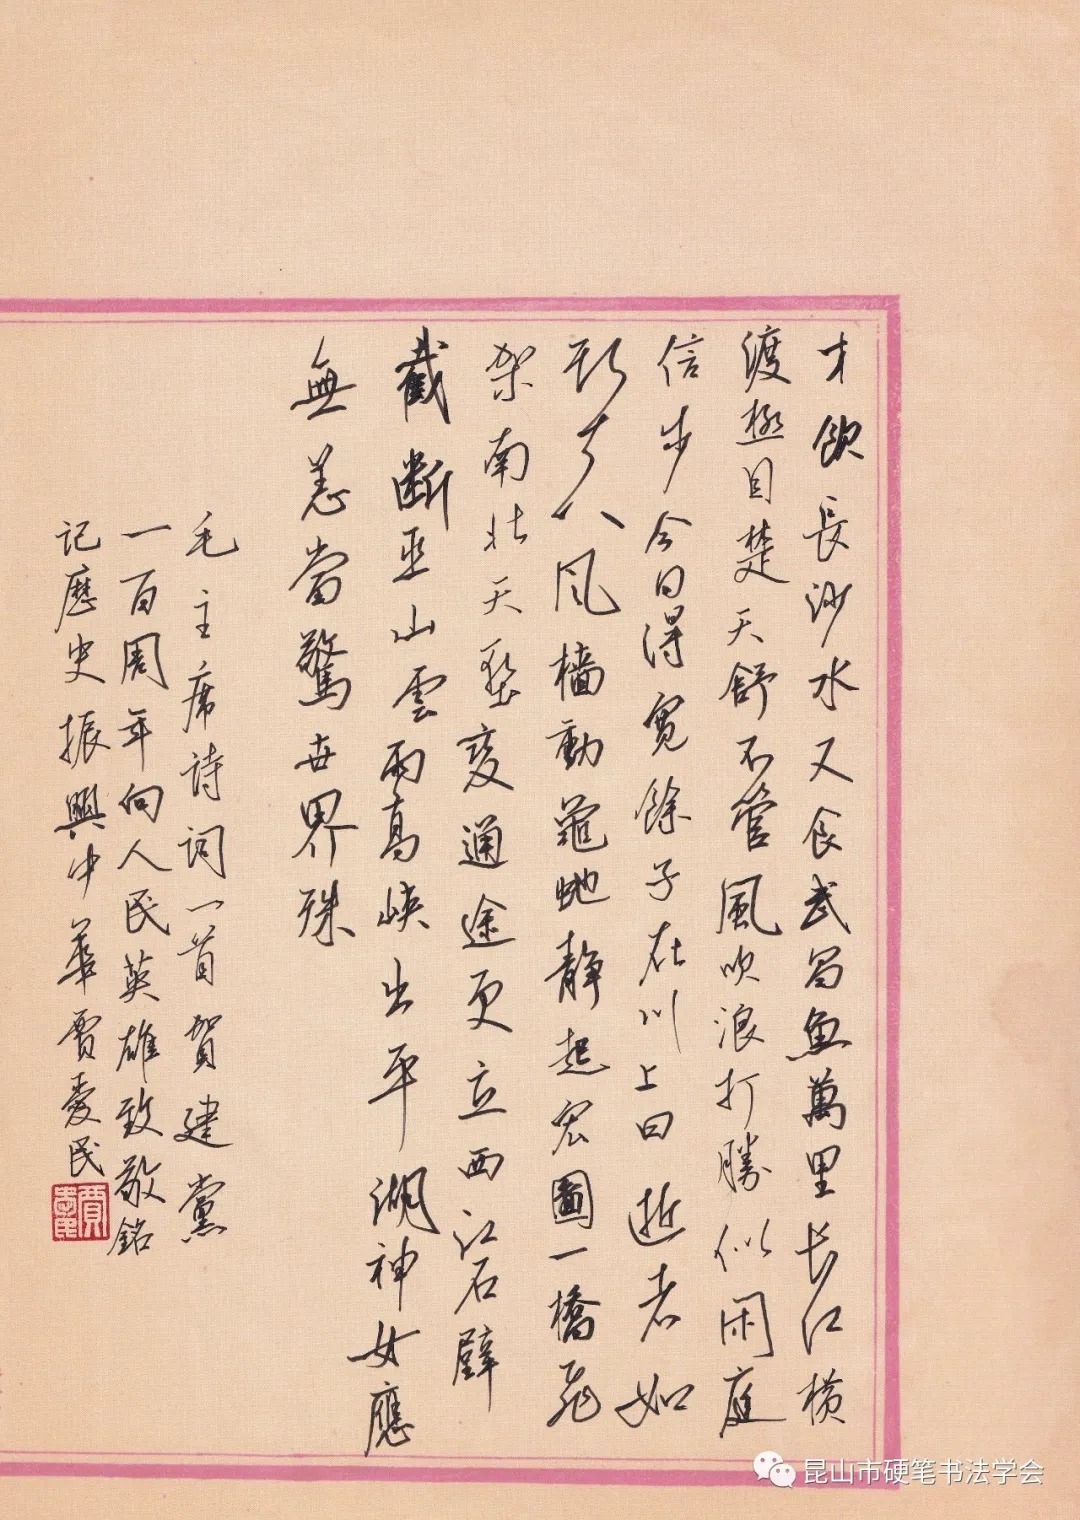 才飲長沙水又食武昌魚萬里长江横
渡極目楚天舒不管風吹浪打勝似闲庭
信步今日得寬餘子在川上曰逝者如
斯夫风檣動龜虵静起宏圖一橋飛
架南北天塹變通途更立西江石壁
截斷巫山雲雨高峽出平湖神女應
無恙當驚世界殊
毛主席詩词一首賀建黨
一百周年向人民英雄致敬銘
记歷史振興中華賈爱民
昆山市硬笔书法学会